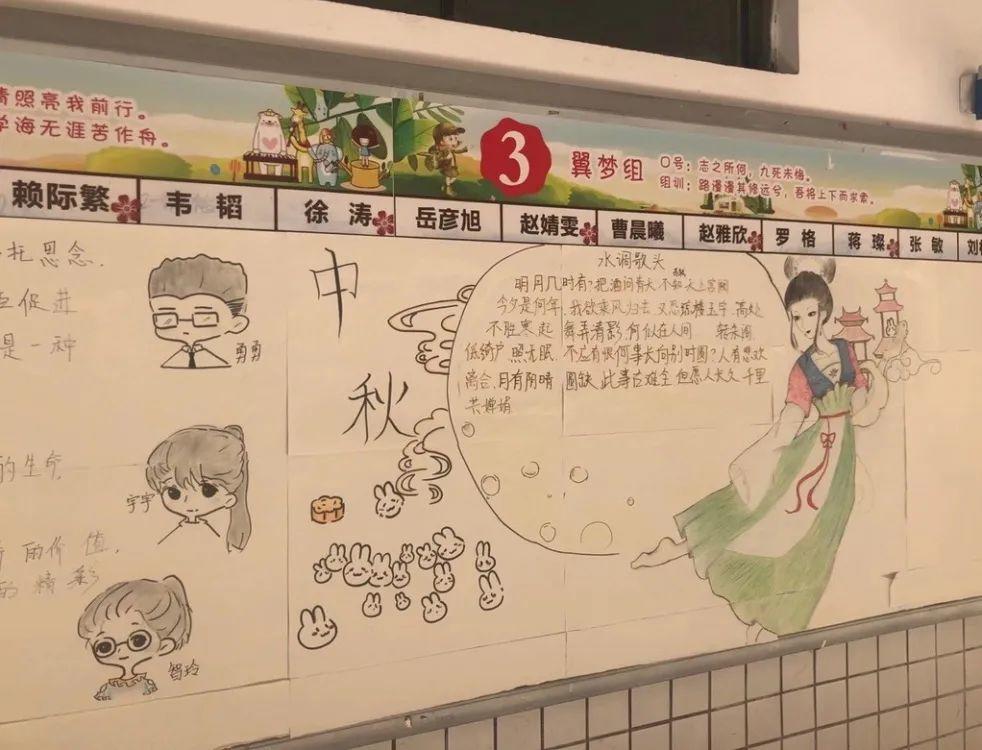 情照亮我前行。
学海无涯苦作舟。
3
翼梦组
口号：志之所向，九死未悔。
组训：路漫漫其修远兮，吾将上下而求索。
赖际繁
韦韬
徐涛
岳彦旭
赵婧雯
曹晨曦
赵雅欣
罗格
蒋璨
张敏
托思念.
促进
是一种
勇勇
的生命
宇宇
的价值.
的精彩
智玲
中
秋
水调歌头
明月几时有?把酒问青天.不知天上宫阙
今夕是何年.我欲乘风归去.又恐琼楼玉宇.高处
不胜寒起舞弄清影,何似在人间 转朱阁.
低绮户.照无眠.不应有恨何事长向别时圆?人有悲欢
离合.月有阴晴圆缺.此事古难全但愿人长久.千里
共婵娟